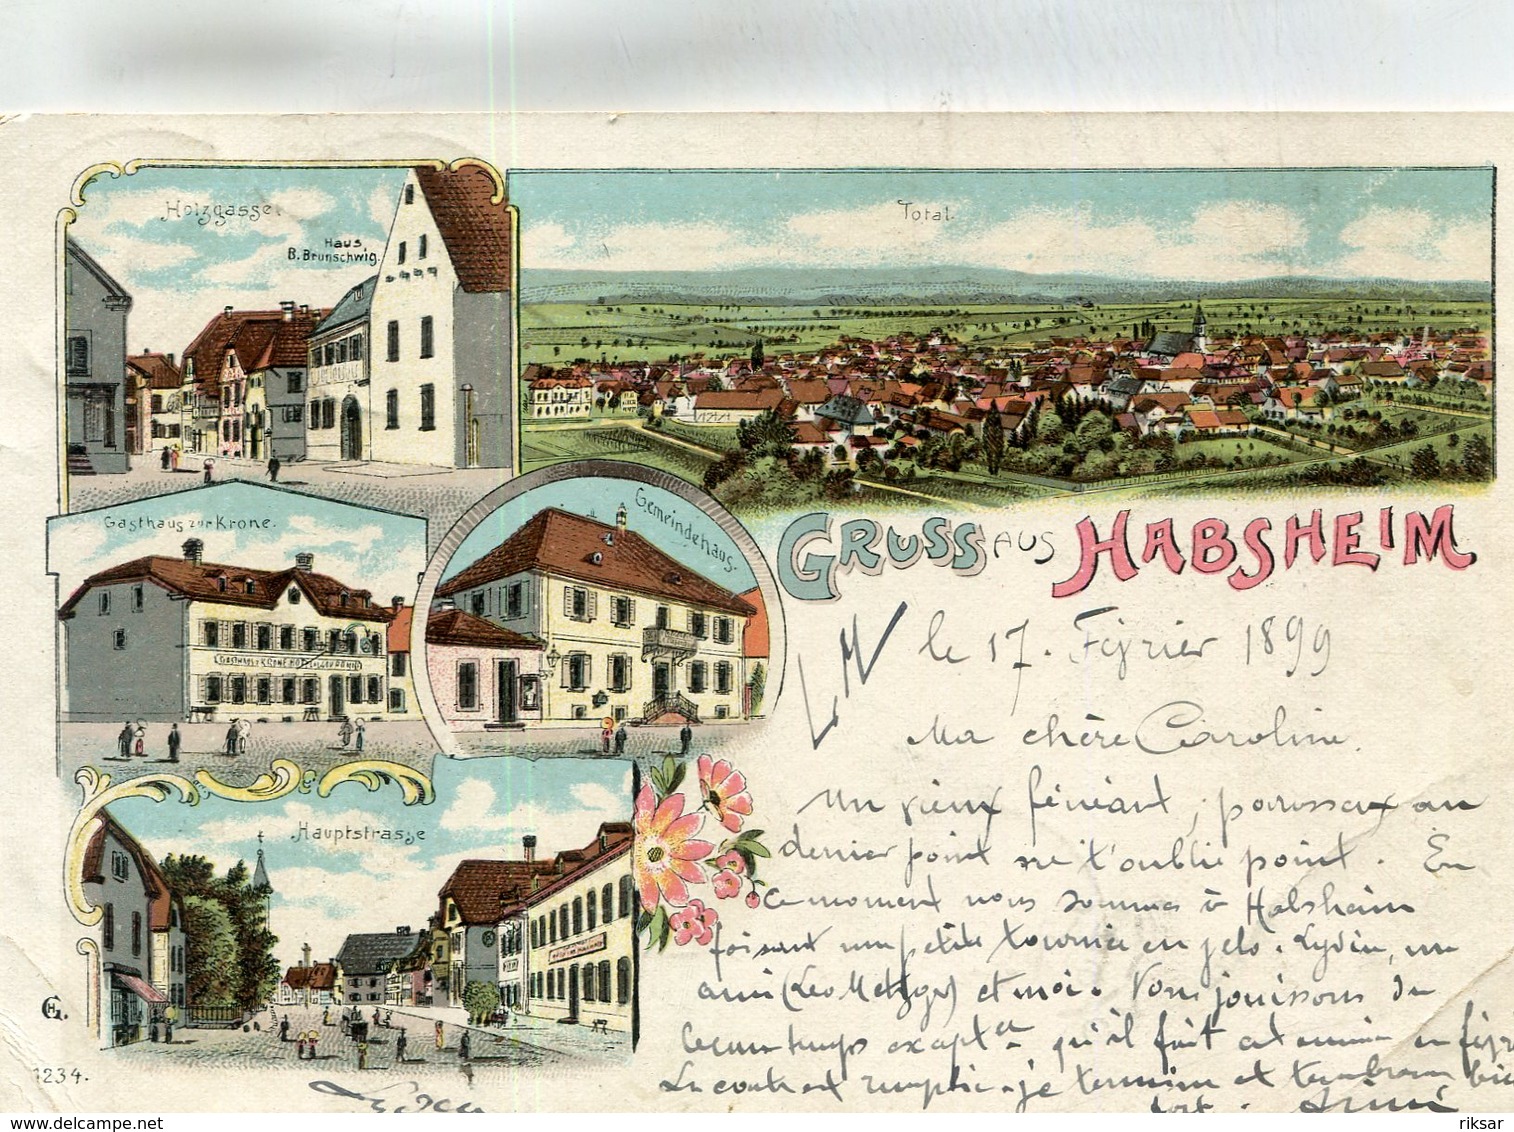 Holzgasse.
Haus
B. Brunschwig.
Total.
Gasthaus zur Krone.
Gemeindehaus.
GRUSS AUS HABSHEIM
Hauptstrasse
le 17. Février 1899
Ma chère Caroline.
Un vieux fénéant, paresseux au
dernier point ne t'oublie point. En
ce moment nous sommes à Habsheim
faisant une petite tournée en vélo. Lydie, un
ami (Leo Metzger) et moi. Nous jouissons du
beau temps qu'il fait cet en
La carte est remplie je termine et t'embrasse bien
fort. Aimé
1234.
www.delcampe.net
riksar